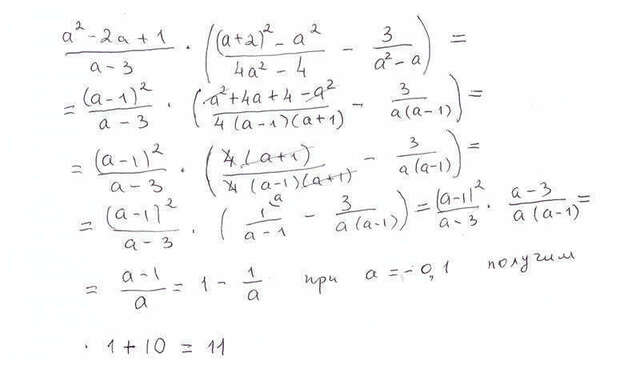 (a² - 2a + 1)/(a - 3) · ( ((a+2)² - a²)/(4a² - 4) - 3/(a² - a) ) =
= (a-1)²/(a-3) · ( (a² + 4a + 4 - a²)/(4(a-1)(a+1)) - 3/(a(a-1)) ) =
= (a-1)²/(a-3) · ( 4(a+1)/(4(a-1)(a+1)) - 3/(a(a-1)) ) =
= (a-1)²/(a-3) · ( 1\a/(a-1) - 3/(a(a-1)) ) = (a-1)²/(a-3) · (a-3)/(a(a-1)) =
= (a-1)/a = 1 - 1/a при a = -0,1 получим
· 1 + 10 = 11